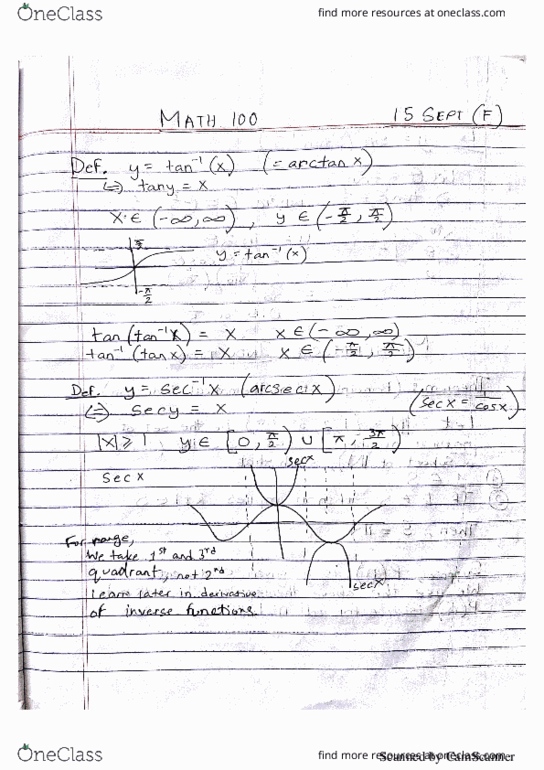 OneClass
find more resources at oneclass.com
MATH 100 15 SEPT (F)
Def. y = tan⁻¹(x) (= arctan x)
(⇔) tan y = x
x ∈ (-∞, ∞), y ∈ (-π/2, π/2)
π/2
y = tan⁻¹(x)
-π/2
tan(tan⁻¹x) = x x ∈ (-∞, ∞)
tan⁻¹(tan x) = x x ∈ (-π/2, π/2)
Def. y = sec⁻¹x (arcsec x)
(⇔) sec y = x (sec x = 1/cos x)
|x| ≥ 1 y ∈ [0, π/2) ∪ [π, 3π/2)
sec x
sec x
For range,
we take 1st and 3rd
quadrant, not 2nd
learn later in derivative
of inverse functions.
sec x
OneClass
find more resources at oneclass.com
Scanned by CamScanner